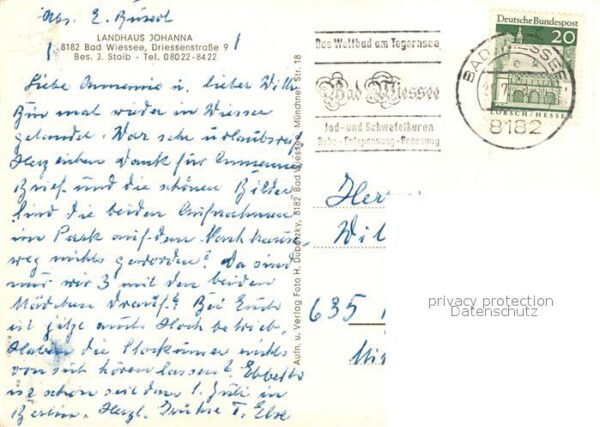 Abs. E. Büsed
LANDHAUS JOHANNA
8182 Bad Wiessee, Driessenstraße 9
Bes. J. Staib - Tel. 08022-8422
Liebe Annemie u. lieber Willi
Bin mal wieder in Wiessee
gelandet. War sehr urlaubsreif
Herzlichen Dank für Annemies
Brief und die schönen Bilder
Sind die beiden Aufnahmen
im Park auf dem Nachhause
weg nichts geworden? Da sind
nur wir 3 mit den beiden
Mädchen drauf? Bei Euch
ist jetzt auch Hochbetrieb.
Haben die nichts
von sich hören lassen?
ist schon seit dem 1. Juli in
Berlin. Herzl. Grüße T. Else
Aufn. u. Verlag Foto H. Dubetzky, 8182 Bad Wiessee, Münchner Str. 18
Das Weltbad am Tegernsee
Bad Wiessee
Jod- und Schwefelkuren
Ruhe-Entspannung-Genesung
Deutsche Bundespost
20
LORSCH/HESSEN
BAD WIESSEE
8182
Herr
Wil
635
privacy protection
Datenschutz